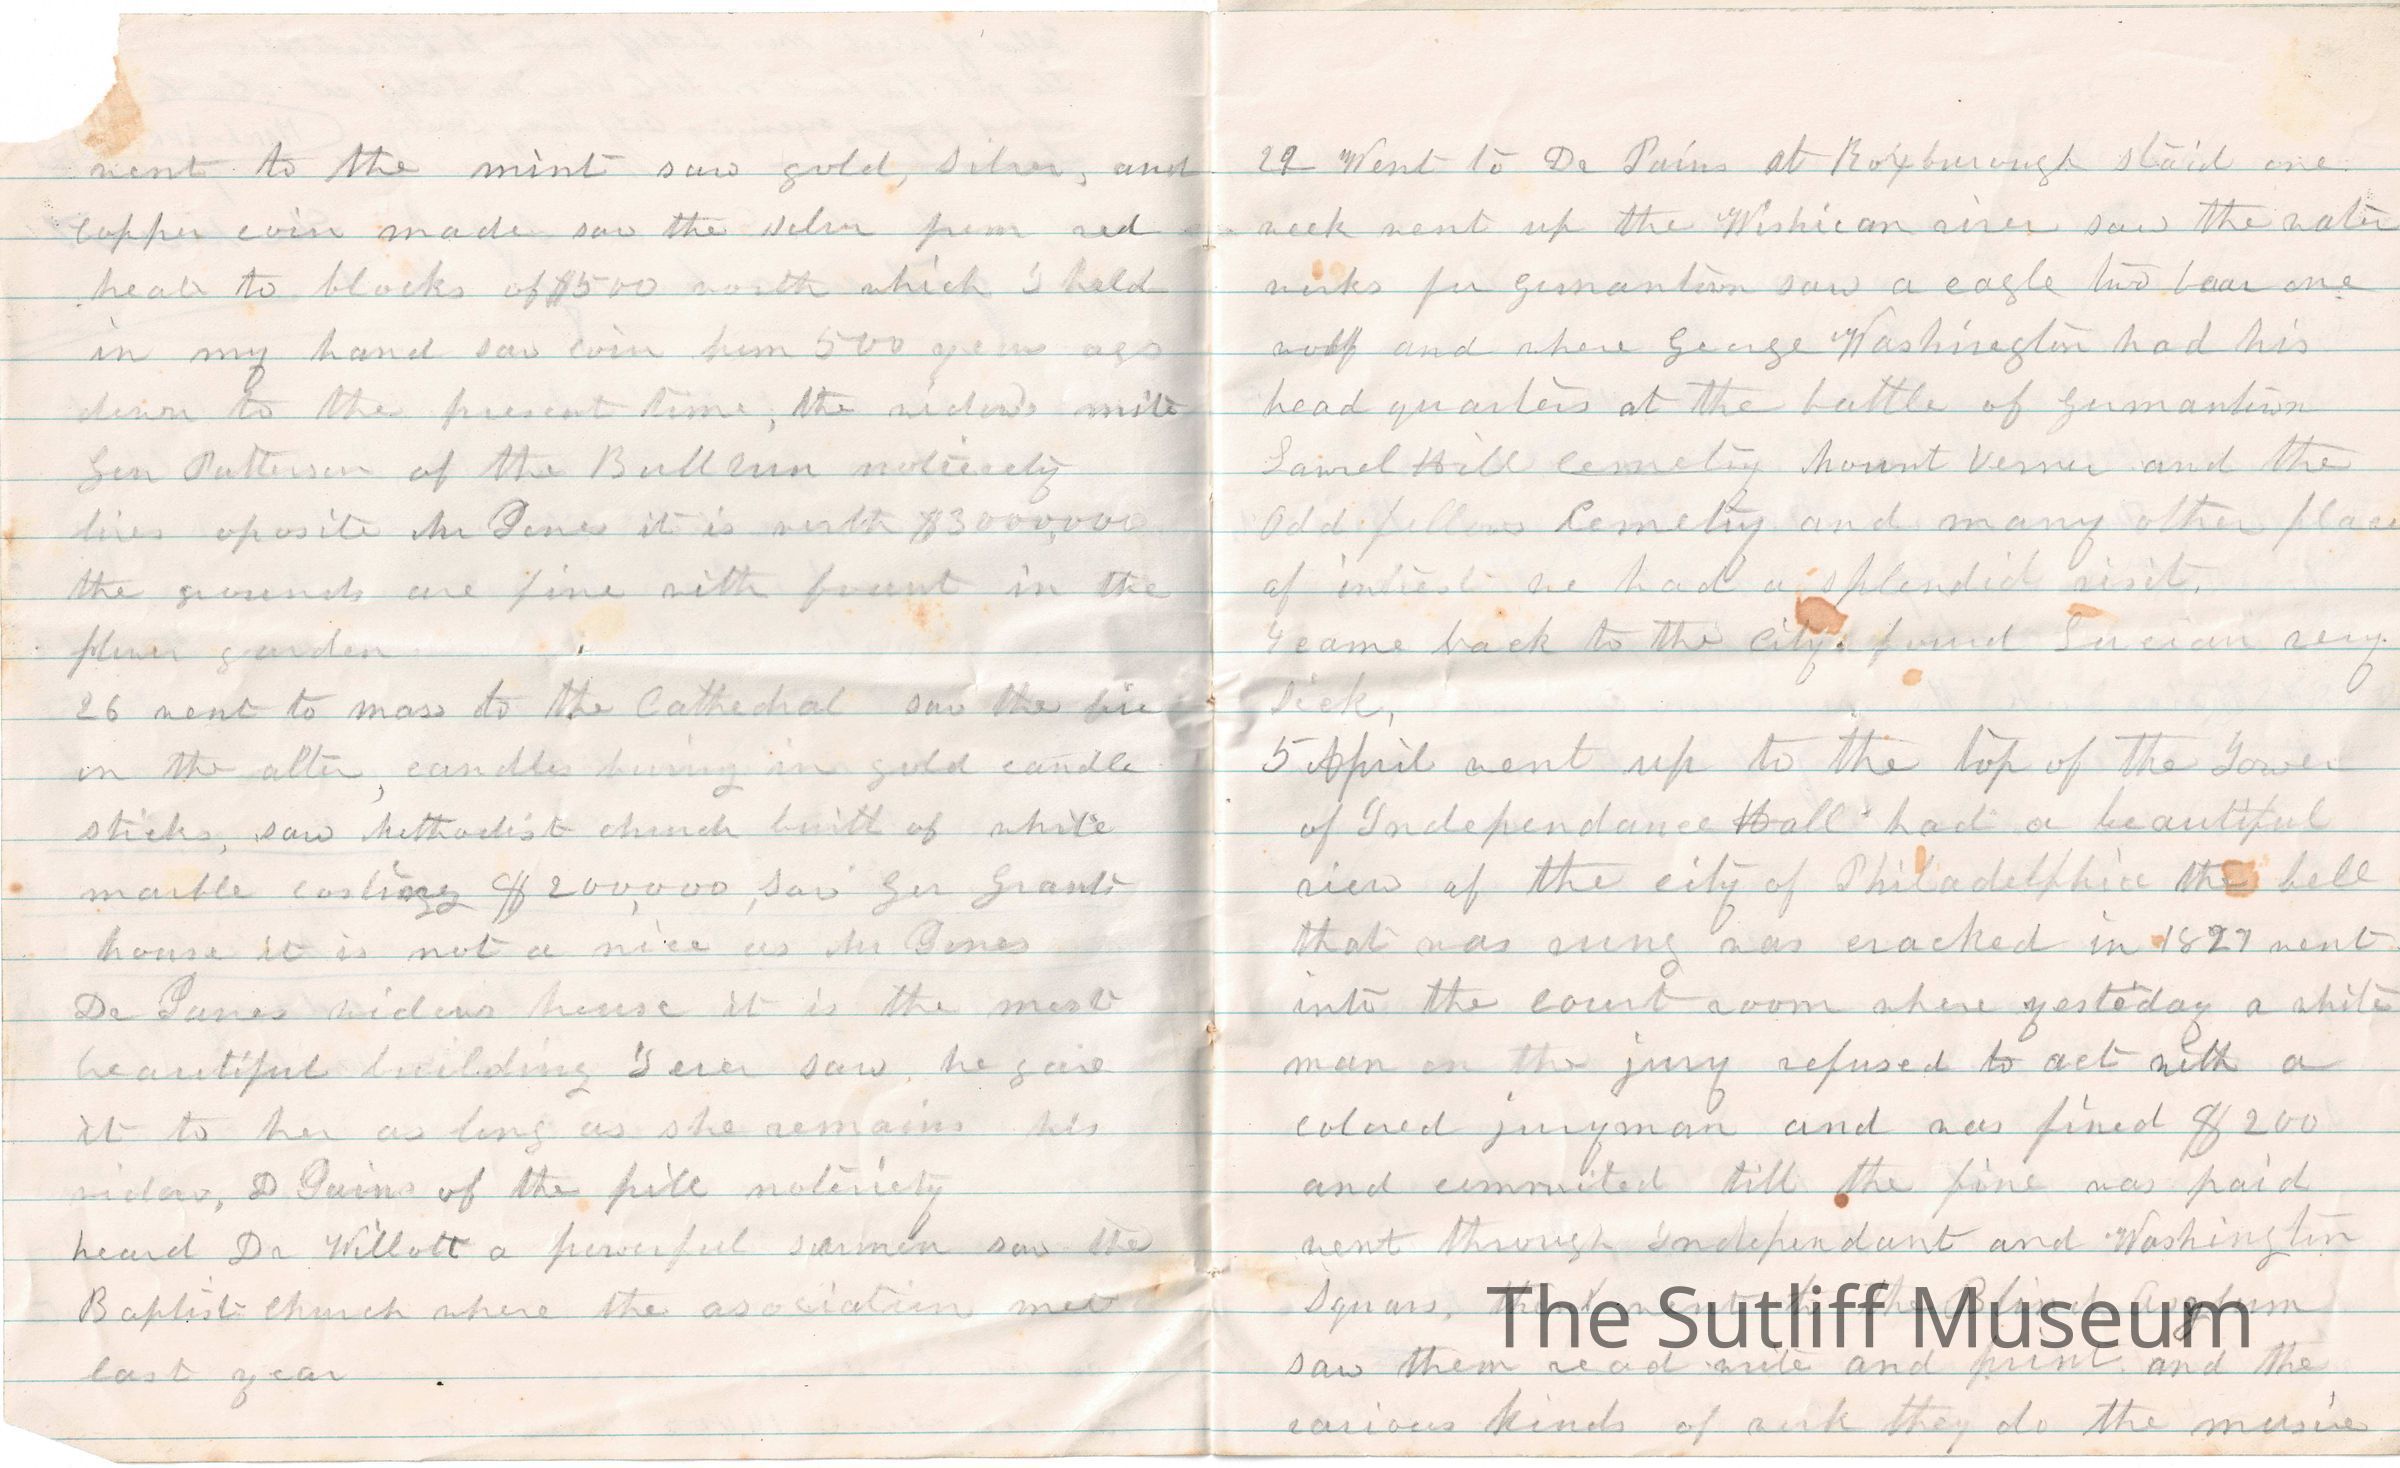 went to the mint saw gold, silver, and
copper coin made saw the silver from red
heat to blocks of $500 worth which I held
in my hand saw coin from 500 years ago
down to the present time, the widow's mite
Gen Patterson of the Bull run noteriety
lives oposite Mr Panes it is worth $3000,000
the grounds are fine with fount in the
flower garden
26 went to mass to the Cathedral saw the fire
on the alter, candles burning in gold candle
sticks, saw Methodist church built of white
marble costing $200,000, saw Gen Grants
house it is not a nice as Mr Panes
Dr Panes widows house it is the most
beautiful building I ever saw, he gave
it to her as long as she remains his
widow, D Pains of the pill noteriety
heard Dr Willott a powerful sermon saw the
Baptist Church where the asociation met
last year
29 Went to Dr Pains at Roxburough staid one
week went up the Wishican river saw the water
works for Germantown saw a eagle two baar one
wolf and where George Washington had his
head quarters at the battle of Germantown
Laurel Hill Cemetry Mount Verner and the
Odd fellows Cemetry and many other place
of intrest we had a splendid visit.
4 came back to the city. found Lucian very
sick,
5 April went up to the top of the Tower
of Independance Hall had a beautiful
view of the city of Philadelphia the bell
that was rung was cracked in 1827 went
into the court room where yesteday a white
man on the jury refused to act with a
colored juryman and was fined $200
and commited till the fine was paid
went through Independant and Washington
Squars, then went to the Blind Asylum
saw them read write and print and the
various kinds of work they do the music
The Sutliff Museum